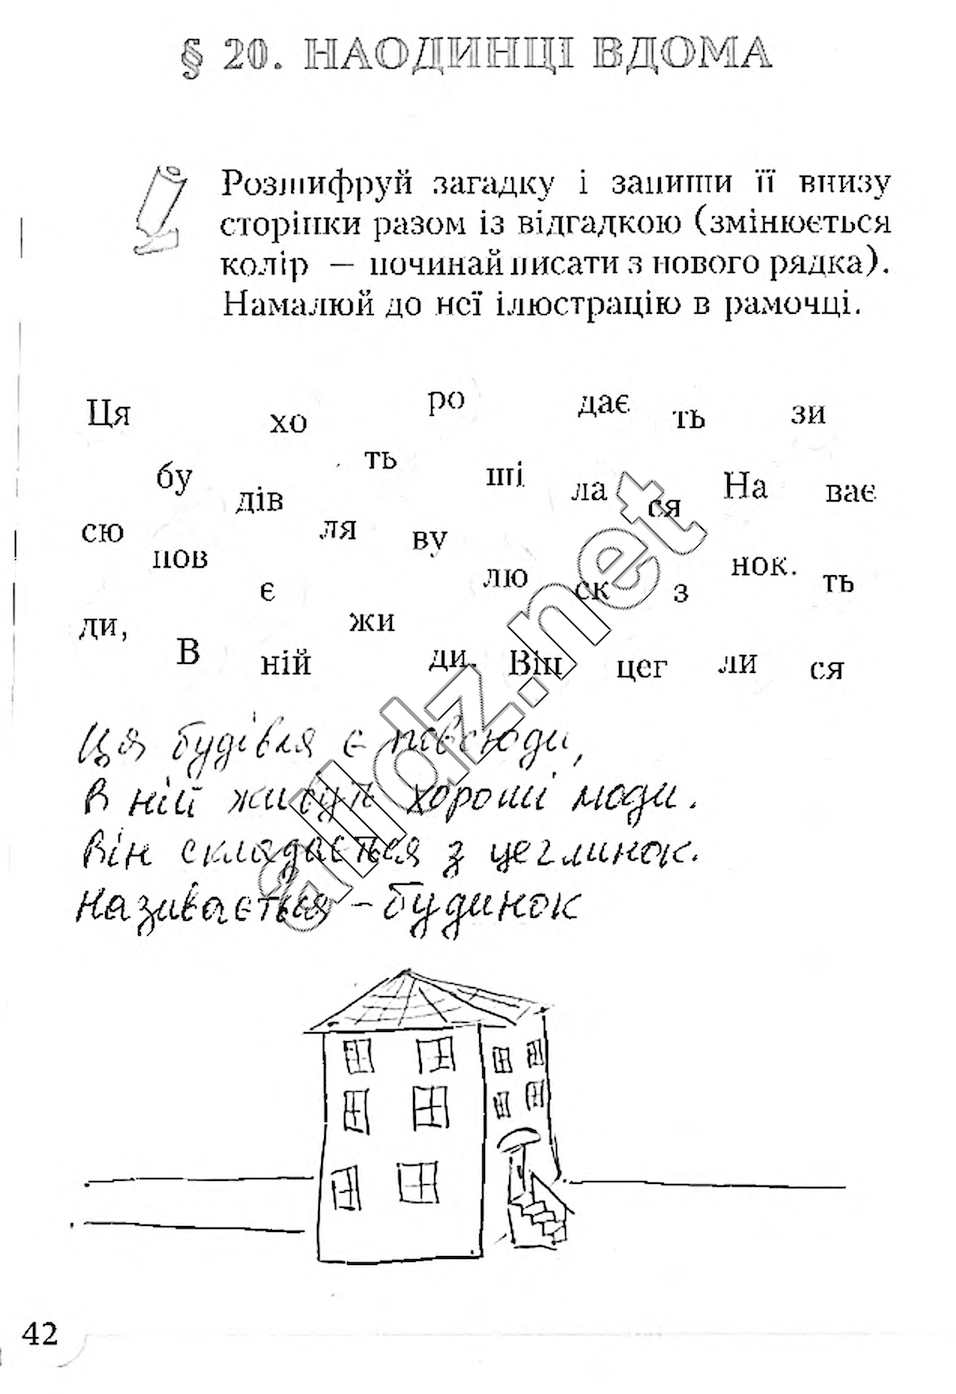 § 20. НАОДИНЦІ ВДОМА
Розшифруй загадку і запиши її внизу
сторінки разом із відгадкою (змінюється
колір — починай писати з нового рядка).
Намалюй до неї ілюстрацію в рамочці.
Ця хо ро дає ть зи
бу дів ть ші ла ся На ває
сю пов ля ву лю ск з нок. ть
є
ди, В ній жи ди. Він цег ли ся
Ця будівля є повсюди,
В ній живуть хороші люди.
Він складається з цеглинок.
Називається - будинок
alldz.net
42